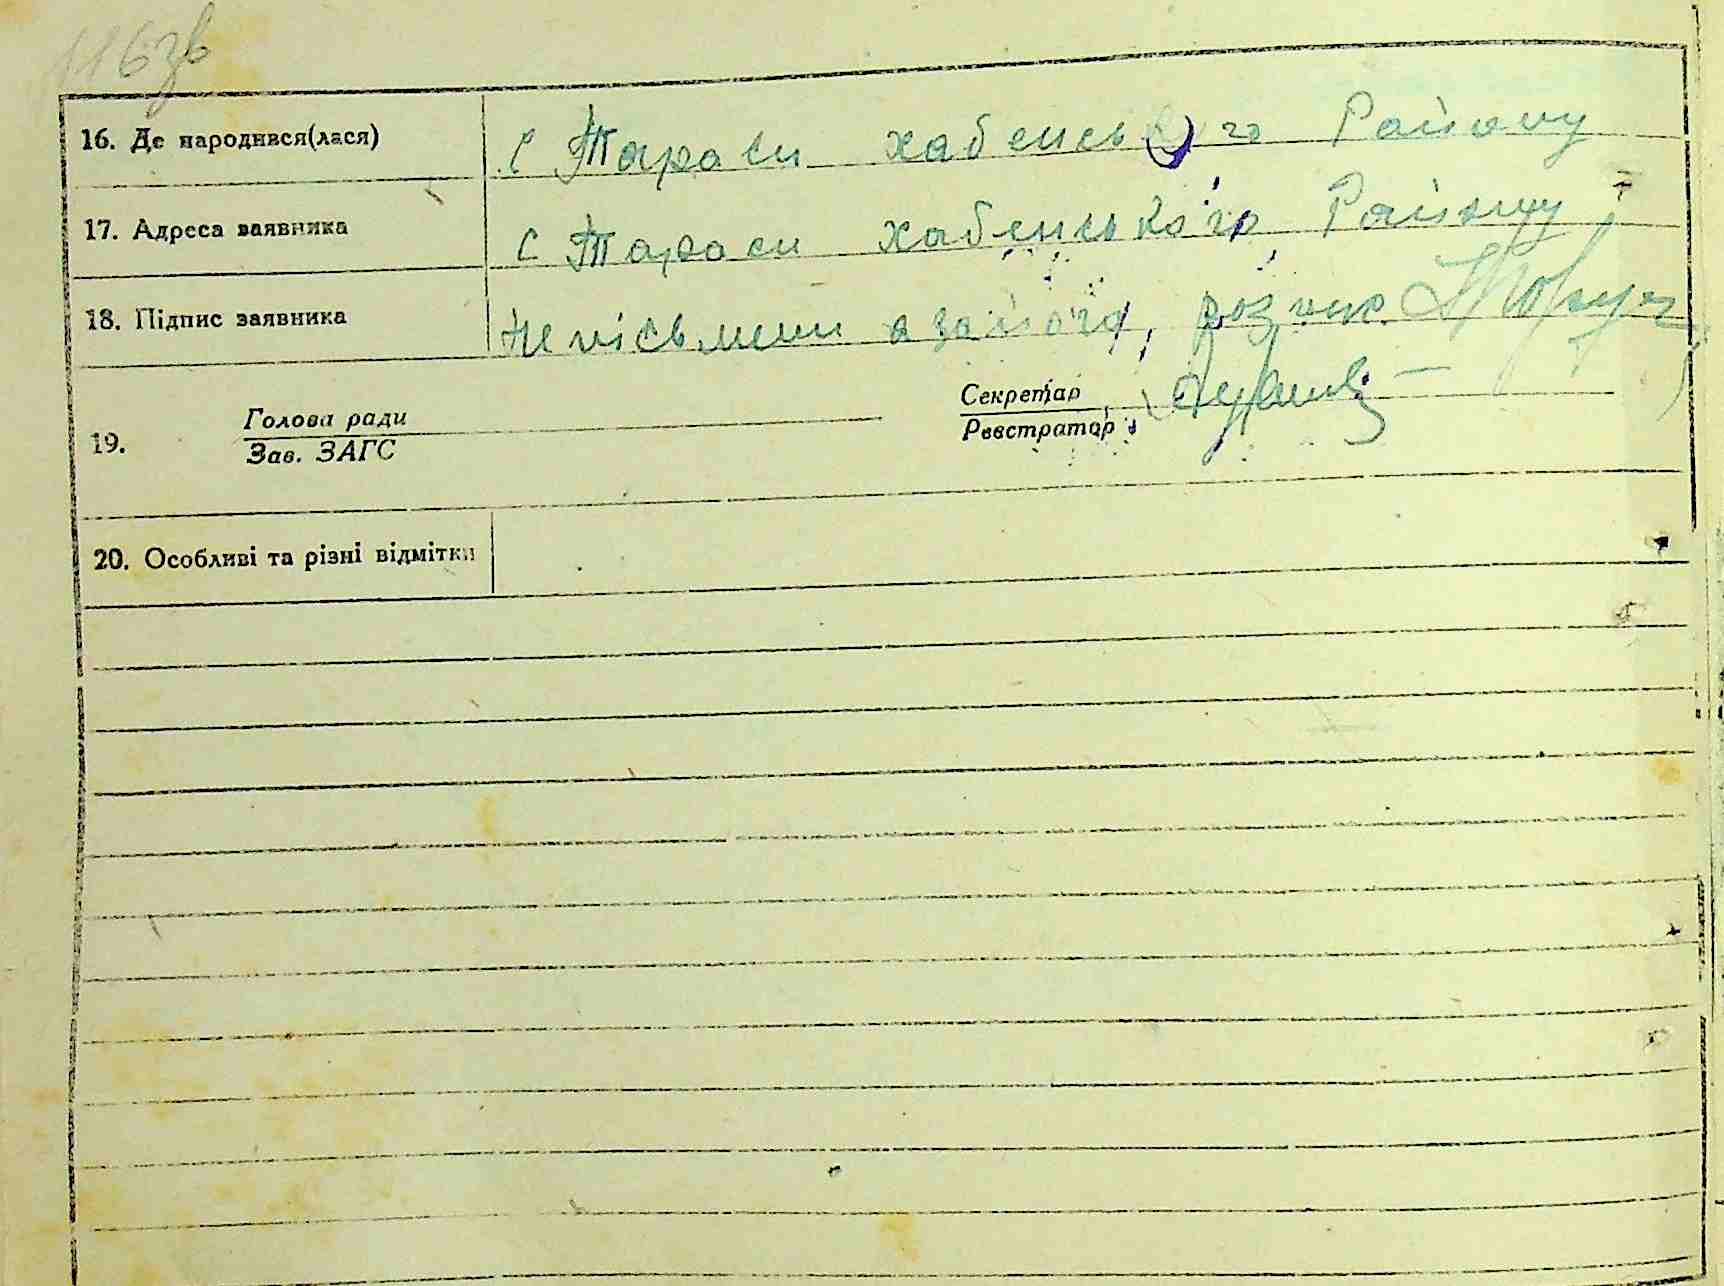 116зв
16. Де народився(лася) с Тараси хабенського Району
17. Адреса заявника с Тараси Хабенського Району
18. Підпис заявника Неписьмени а за його, розпис.
Голова ради Секретар
19. Зав. ЗАГС Реєстратор
20. Особливі та різні відмітки